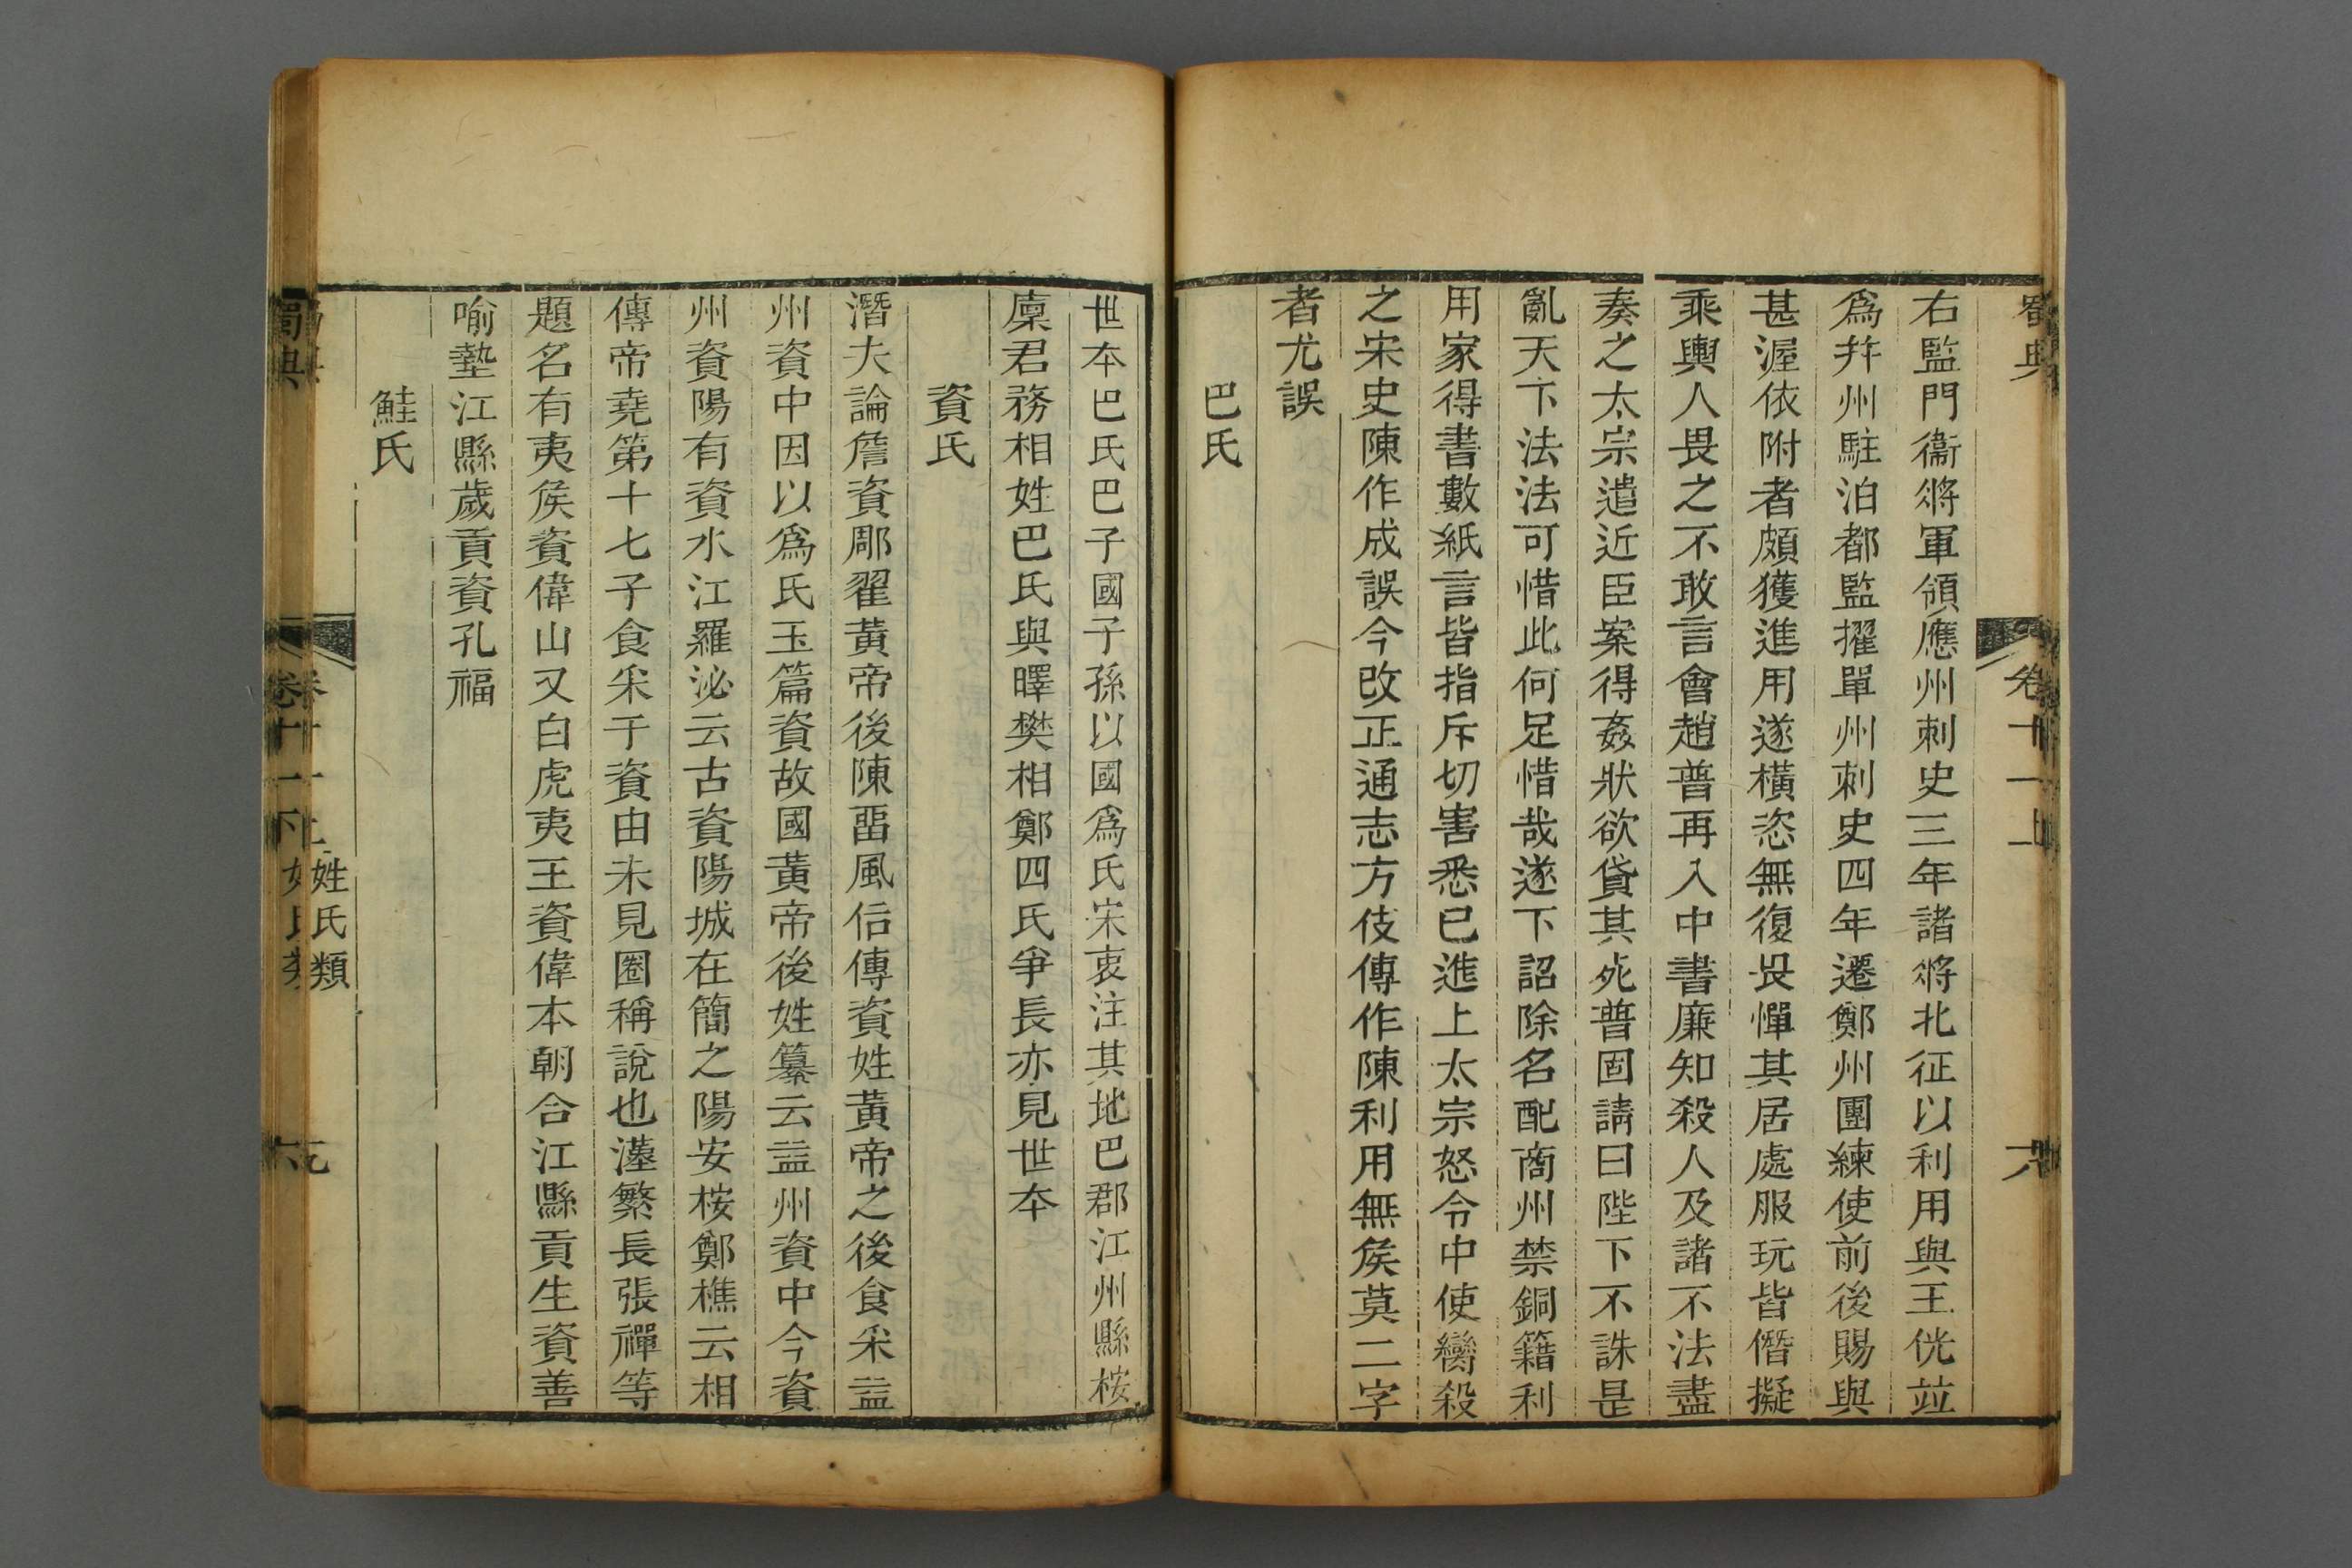 蜀典 卷十一上 六
右監門衞將軍領應州刺史三年諸將北征以利用與王侁竝
爲幷州駐泊都監擢單州刺史四年遷鄭州團練使前後賜與
甚渥依附者頗獲進用遂橫恣無復畏憚其居處服玩皆僭擬
乘輿人畏之不敢言會趙普再入中書廉知殺人及諸不法盡
奏之太宗遣近臣案得姦狀欲貸其死普固請曰陛下不誅是
亂天下法法可惜此何足惜哉遂下詔除名配商州禁錮籍利
用家得書數紙言皆指斥切害悉已進上太宗怒令中使臠殺
之宋史陳作成誤今改正通志方伎傳作陳利用無矦莫二字
者尤誤
巴氏
世本巴氏巴子國子孫以國爲氏宋衷注其地巴郡江州縣桉
廩君務相姓巴氏與曎樊相鄭四氏爭長亦見世本
資氏
潛夫論詹資郮翟黃帝後陳畱風俗傳資姓黃帝之後食采益
州資中因以爲氏玉篇資故國黃帝後姓纂云益州資中今資
州資陽有資水江羅泌云古資陽城在簡之陽安桉鄭樵云相
傳帝堯第十七子食采于資由未見圈稱說也漢繁長張禪等
題名有夷矦資偉山又白虎夷王資偉本朝合江縣貢生資善
喻墊江縣歲貢資孔福
鮭氏
姓氏類
蜀典 卷十一下